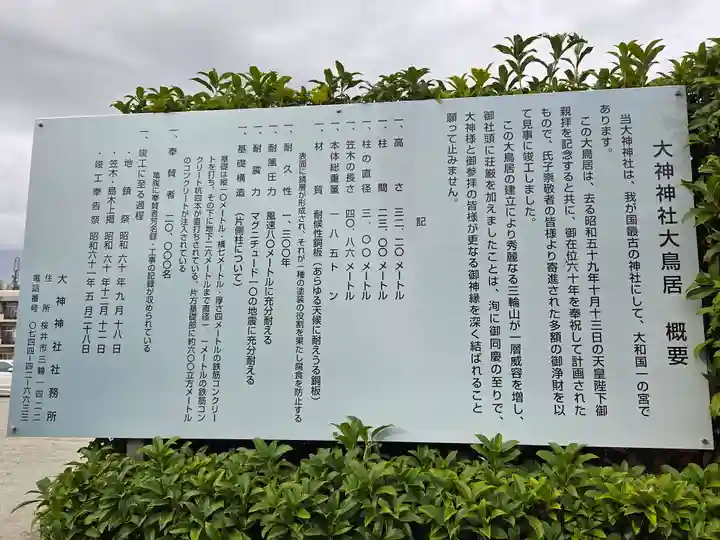 大神神社大鳥居　概要
当大神神社は、我が国最古の神社にして、大和国一の宮で
あります。
この大鳥居は、去る昭和五十九年十月十三日の天皇陛下御
親拝を記念すると共に、御在位六十年を奉祝して計画された
もので、氏子崇敬者の皆様より寄進された多額の御浄財を以
て見事に竣工しました。
この大鳥居の建立により秀麗なる三輪山が一層威容を増し、
御社頭に荘厳を加えましたことは、洵に御同慶の至りで、
大神様と御参拝の皆様が更なる御神縁を深く結ばれること
願って止みません。
記
一、高さ　三二・二〇メートル
一、柱間　二三・〇〇メートル
一、柱の直径　三・〇〇メートル
一、笠木の長さ　四〇・八六メートル
一、本体総重量　一八五トン
一、材質　耐候性鋼板（あらゆる天候に耐えうる鋼板）
表面に錆層が形成され、それが一種の塗装の役割を果たし腐食を防止する
一、耐久性　一、三〇〇年
一、耐風圧力　風速八〇メートルに充分耐える
一、耐震力　マグニチュード一〇の地震に充分耐える
一、基礎構造　（片側柱について）
基礎は縦一〇メートル・横七メートル・厚さ四メートルの鉄筋コンクリー
トを打ち、その下に地下二六メートルまで直径一・一メートルの鉄筋コン
クリート杭四本が直打ちされている。片方基礎部に約六〇〇立方メートル
のコンクリートが注入されている
一、奉賛者　二〇、〇〇〇名
亀腹に奉賛者芳名録・工事の記録が収められている
一、竣工に至る過程
・地鎮祭　昭和六十年九月十八日
・笠木・島木上掲　昭和六十年十二月十二日
・竣工奉告祭　昭和六十一年五月二十八日
大神神社社務所
住所　桜井市三輪一四二二
電話番号　〇七四四-四二-六六三三